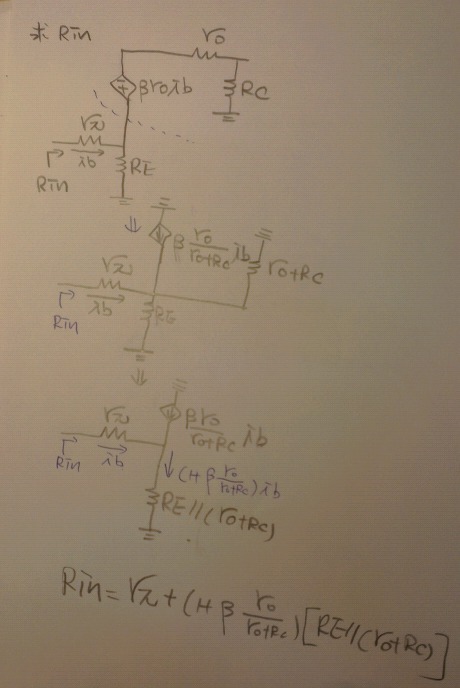 求 Rin
ro
βroib
RC
rπ
ib
RE
Rin
⇓
β ro/(ro+RC) ib
ro+RC
rπ
ib
RE
Rin
⇓
βro/(ro+RC) ib
rπ
ib
Rin
(1+β ro/(ro+RC)) ib
RE//(ro+RC)
Rin = rπ + (1+β ro/(ro+RC)) [RE//(ro+RC)]